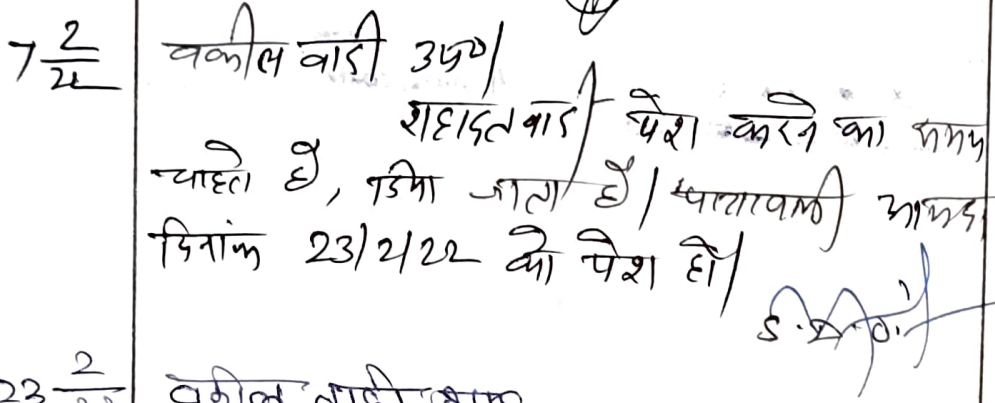 7 2/22 वकील वादी उप०।
शहादत वादी पेश करने का समय
चाहते है, दिया जाता है। पत्रावली आमदा
दिनांक 23/2/22 को पेश हो।
S.D.O.
23 2/ वकील वादी